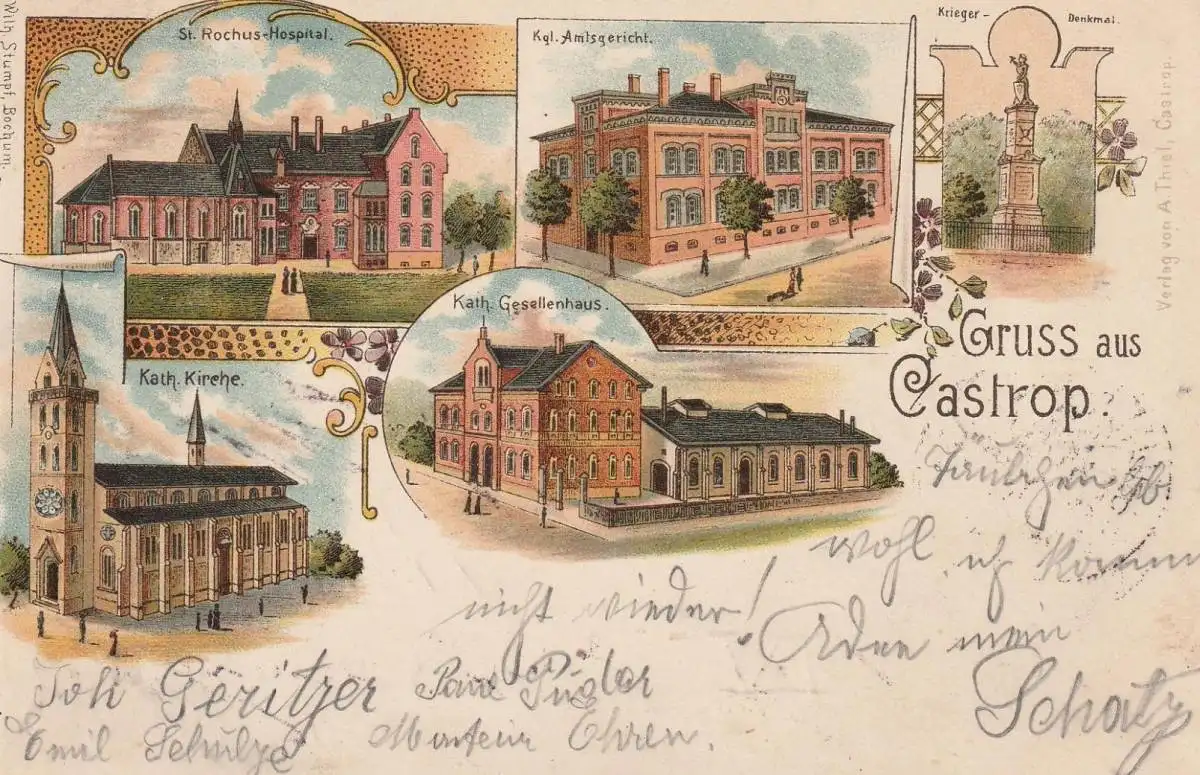 Wilh. Stumpf, Bochum.
St. Rochus-Hospital.
Kgl. Amtsgericht.
Krieger - Denkmal.
Verlag von A. Thiel, Castrop.
Kath. Kirche.
Kath. Gesellenhaus.
Gruss aus
Castrop.
wohl, ich komm
nicht wieder!
Adee mein
Schatz
Joh Geritzer
Emil Schulze
Monteur Ehren.